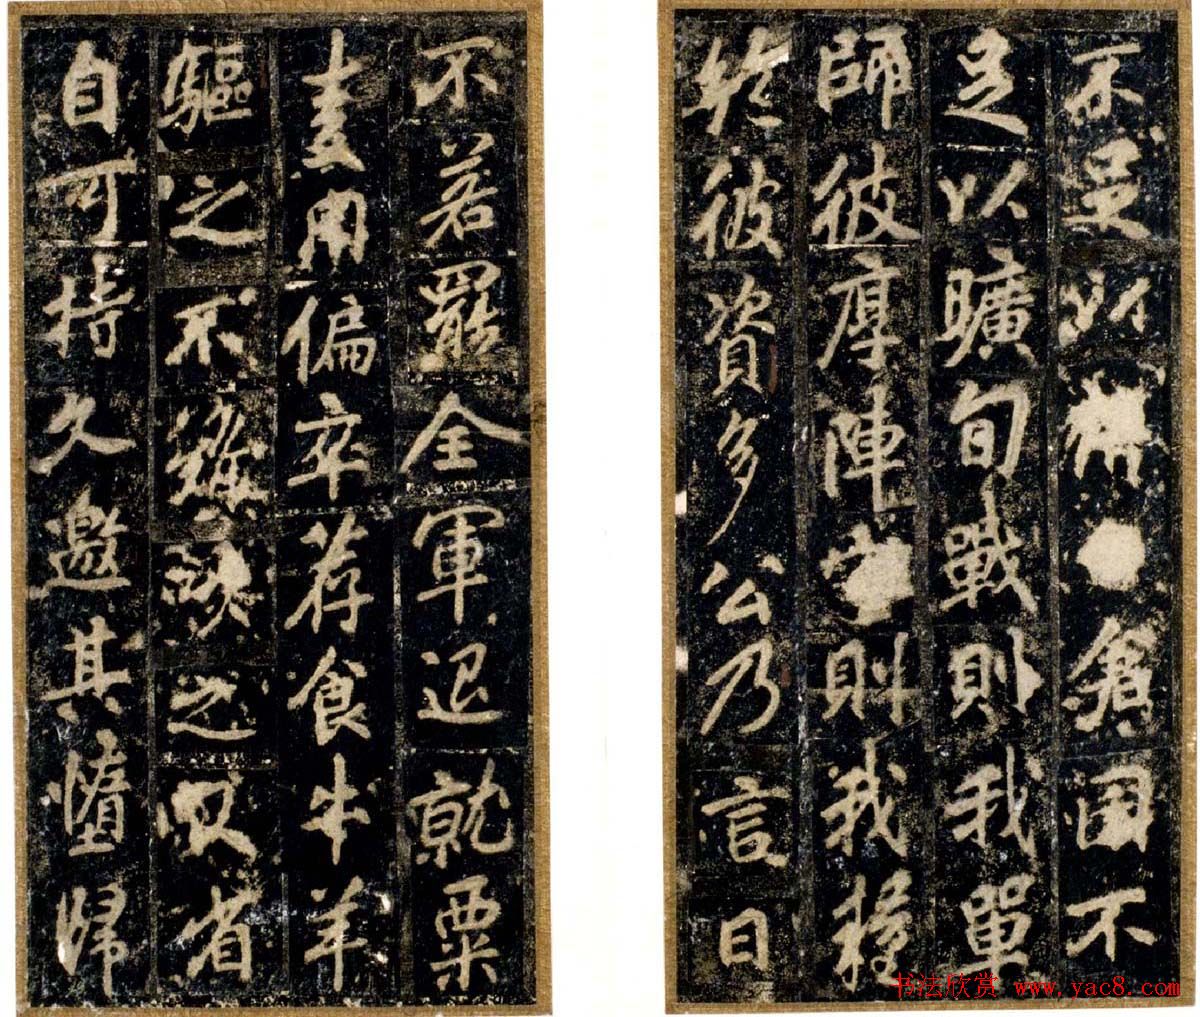 不足以■■倉困不
足以曠旬戰則我單
師彼厚陣■則我糧
於彼資多公乃言曰
不若罷全軍退就粟
麦用偏卒荐食牛羊
驅之不■■之収省
自可持久邀其惰歸
书法欣赏 www.yac8.com